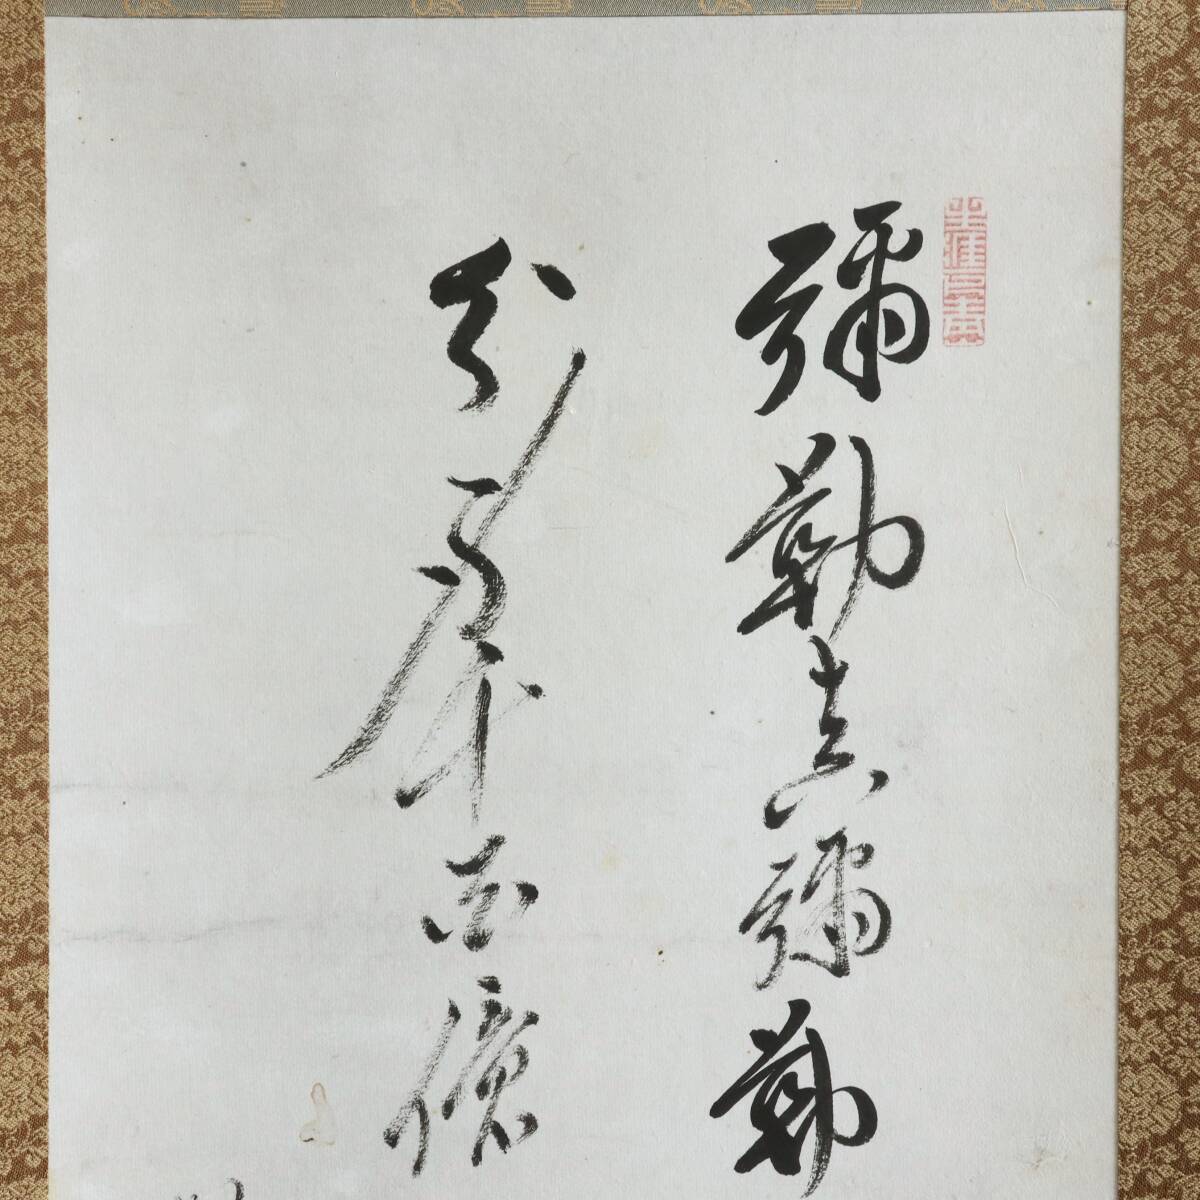 彌勒真彌勒
分身千百億